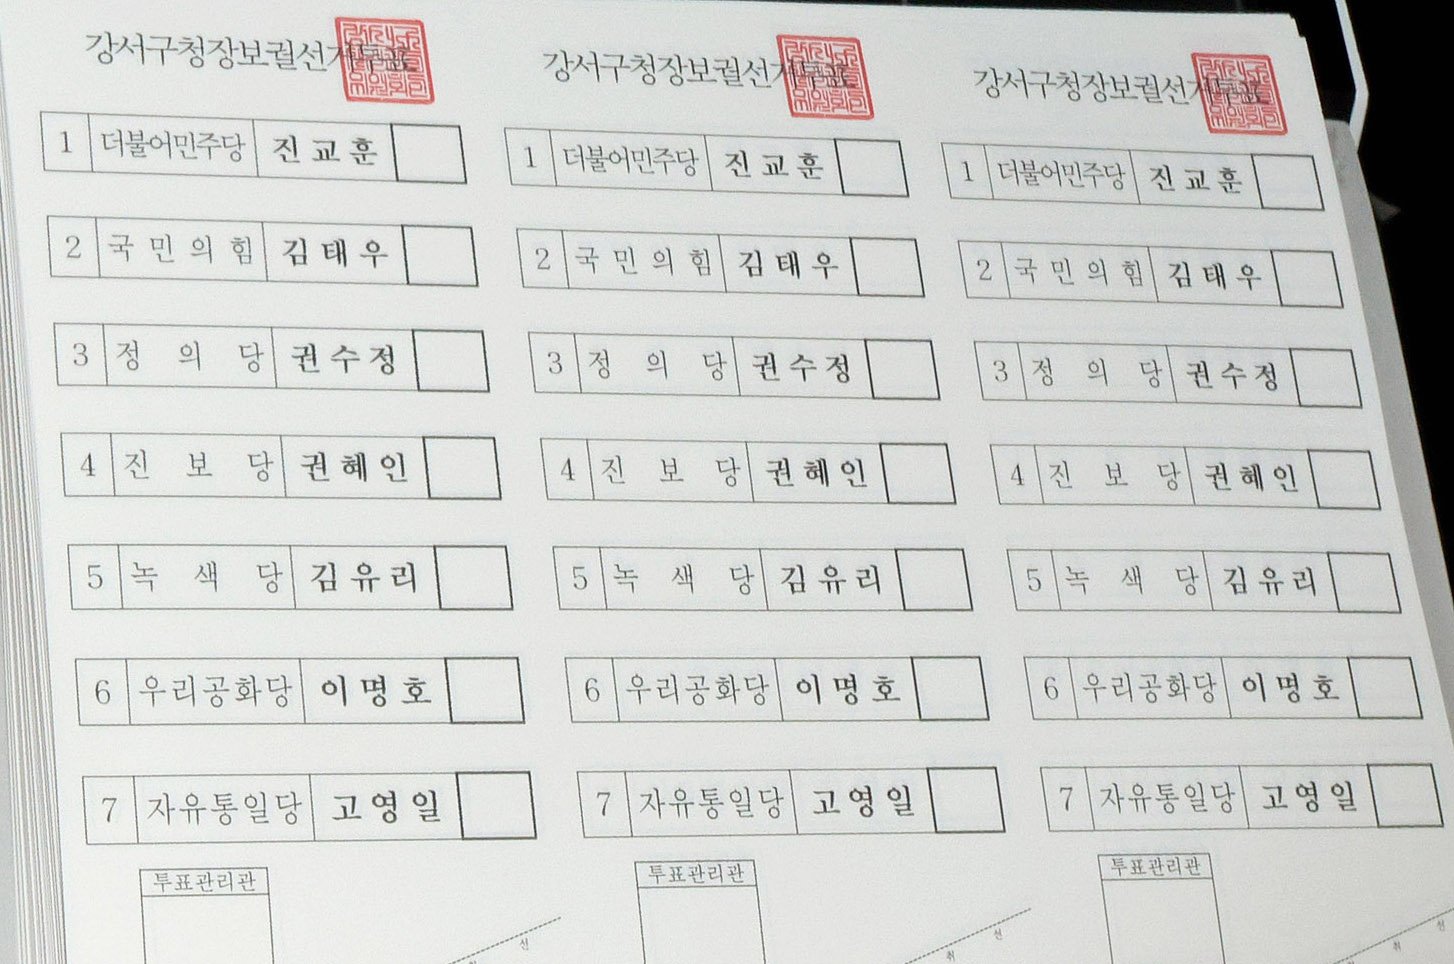 강서구청장보궐선거투표
1 더불어민주당 진교훈
2 국민의힘 김태우
3 정의당 권수정
4 진보당 권혜인
5 녹색당 김유리
6 우리공화당 이명호
7 자유통일당 고영일
투표관리관
선
강서구청장보궐선거투표
1 더불어민주당 진교훈
2 국민의힘 김태우
3 정의당 권수정
4 진보당 권혜인
5 녹색당 김유리
6 우리공화당 이명호
7 자유통일당 고영일
투표관리관
취 선
강서구청장보궐선거투표
1 더불어민주당 진교훈
2 국민의힘 김태우
3 정의당 권수정
4 진보당 권혜인
5 녹색당 김유리
6 우리공화당 이명호
7 자유통일당 고영일
투표관리관
취 선